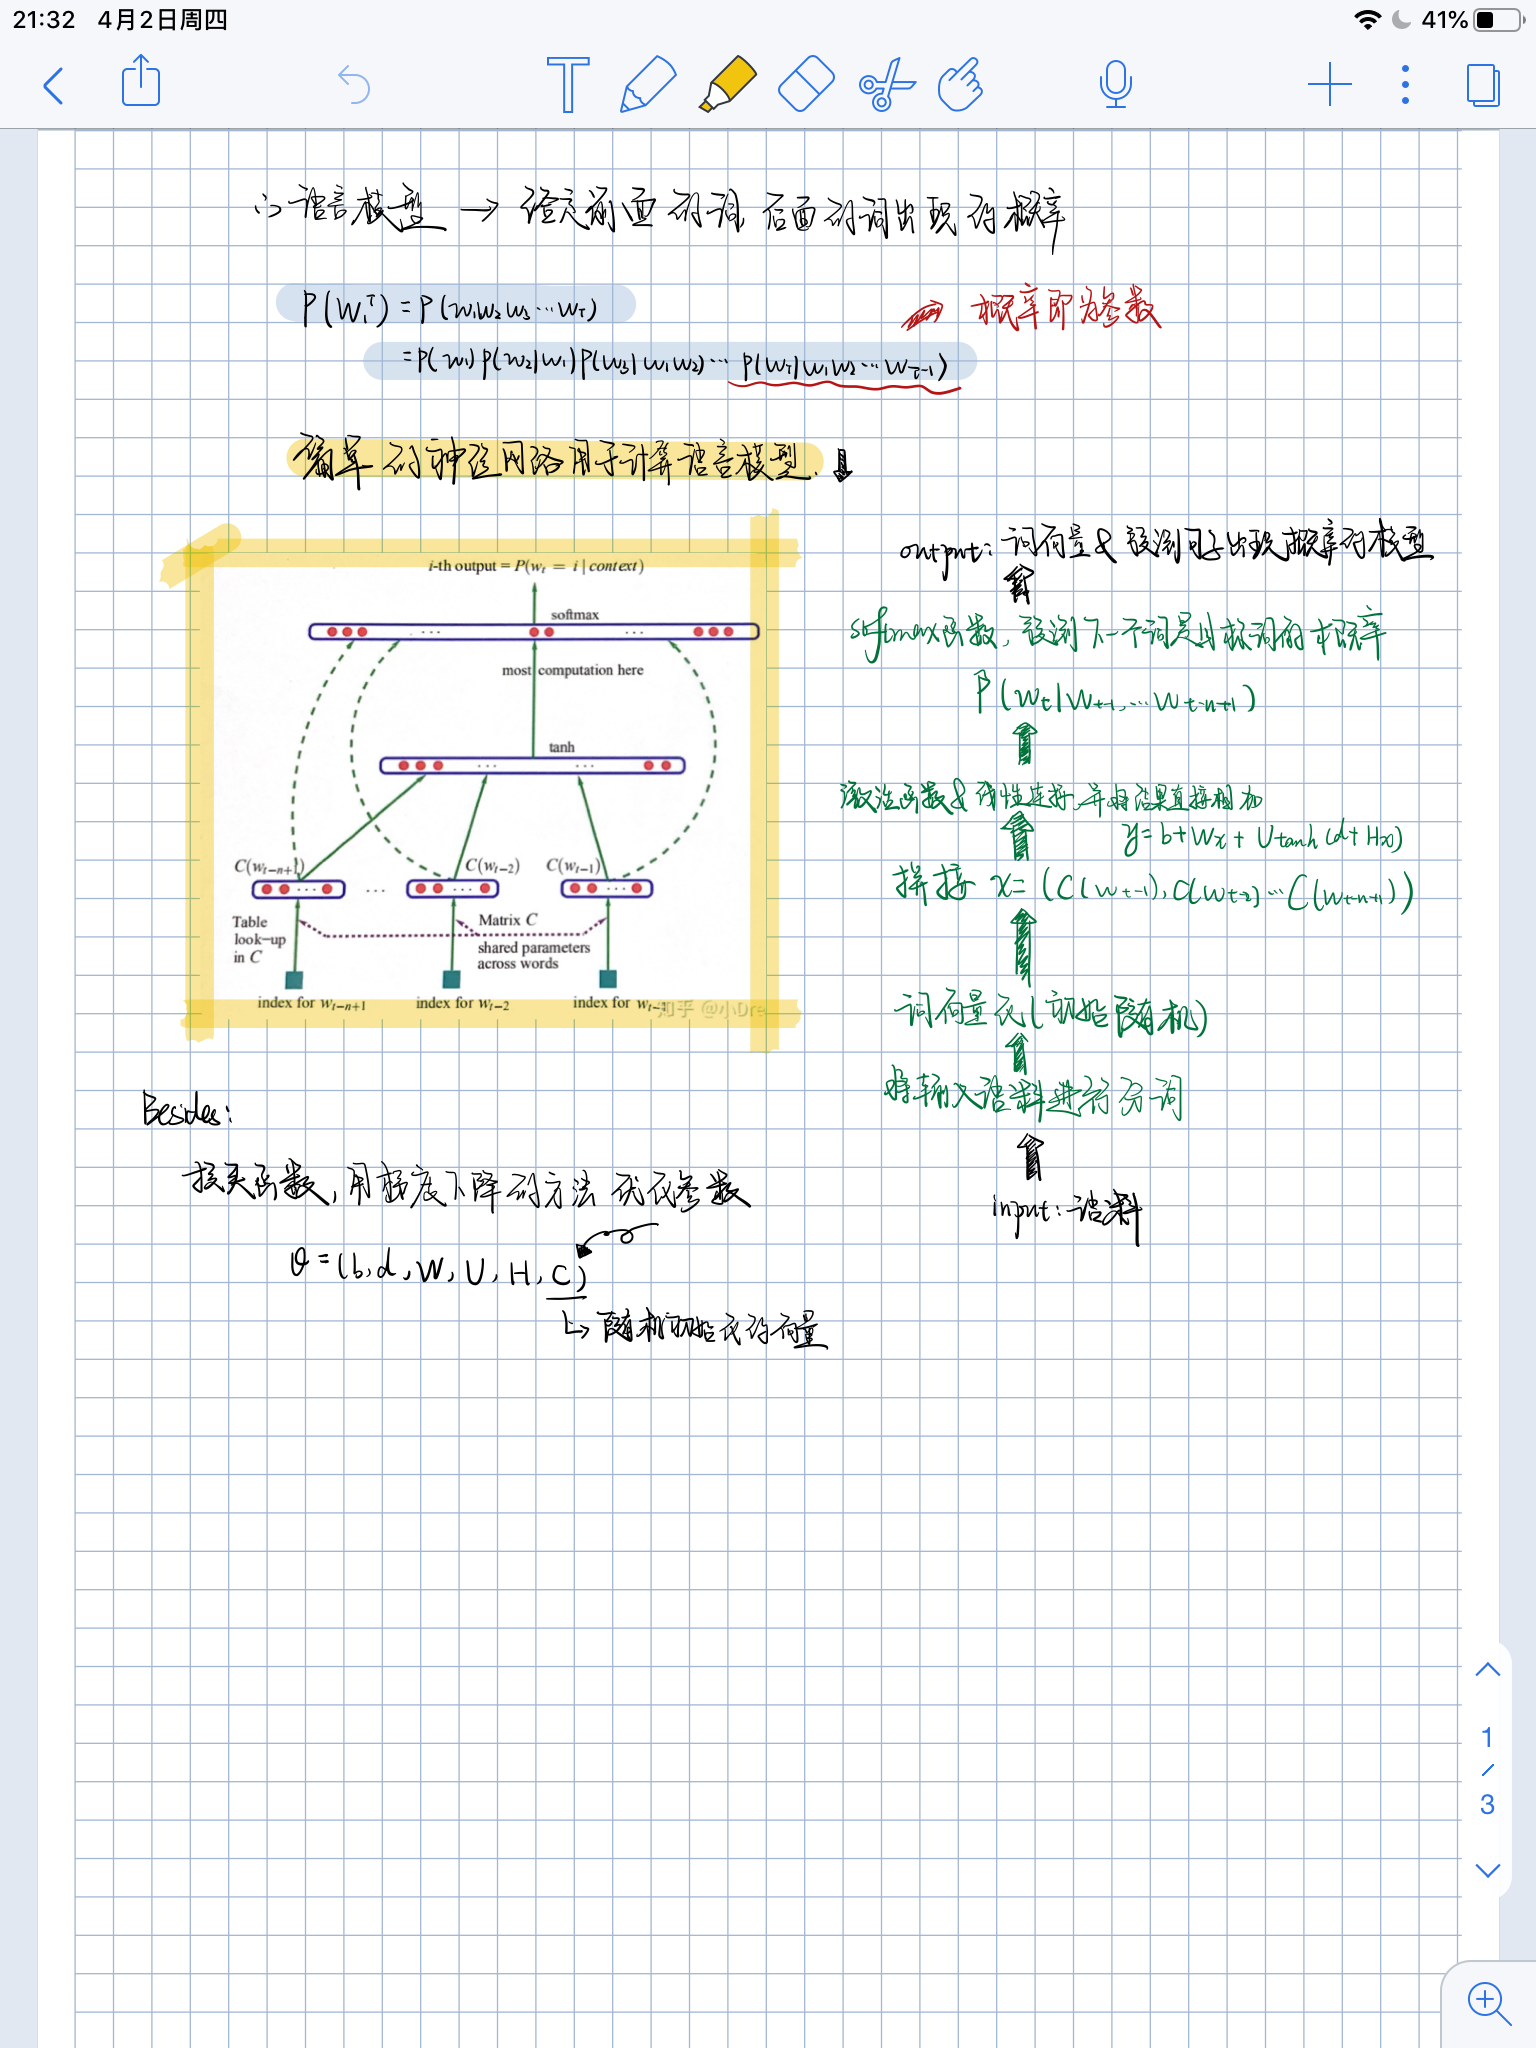 21:32 4月2日周四 41%
语言模型 → 给定前面的词 后面的词出现的概率
P(W₁ᵀ) = P(w₁w₂w₃…wT)
概率即为参数
=P(w₁)P(w₂|w₁)P(w₃|w₁w₂)… P(wT|w₁w₂…wT-1)
简单的神经网络用于计算语言模型.
output: 词向量 & 预测句子出现概率的模型
softmax函数, 预测下一个词是目标词的概率
P(wt|wt-1,…wt-n+1)
激活函数 & 线性连接, 并将结果直接相加
y=b+Wx+Utanh(d+Hx)
拼接 x=(C(wt-1),C(wt-2)…C(wt-n+1))
词向量化(初始随机)
将输入语料进行分词
input: 语料
i-th output = P(wt = i | context)
softmax
... ...
most computation here
tanh
... ...
C(wt−n+1) C(wt−2) C(wt−1)
... ... ... ...
Table look−up in C
Matrix C
shared parameters
across words
index for wt−n+1 index for wt−2 index for wt−1
知乎 @小Dre
Besides:
损失函数, 用梯度下降的方法 优化参数
θ=(b,d,W,U,H,C)
↳ 随机初始化的向量
1
/
3